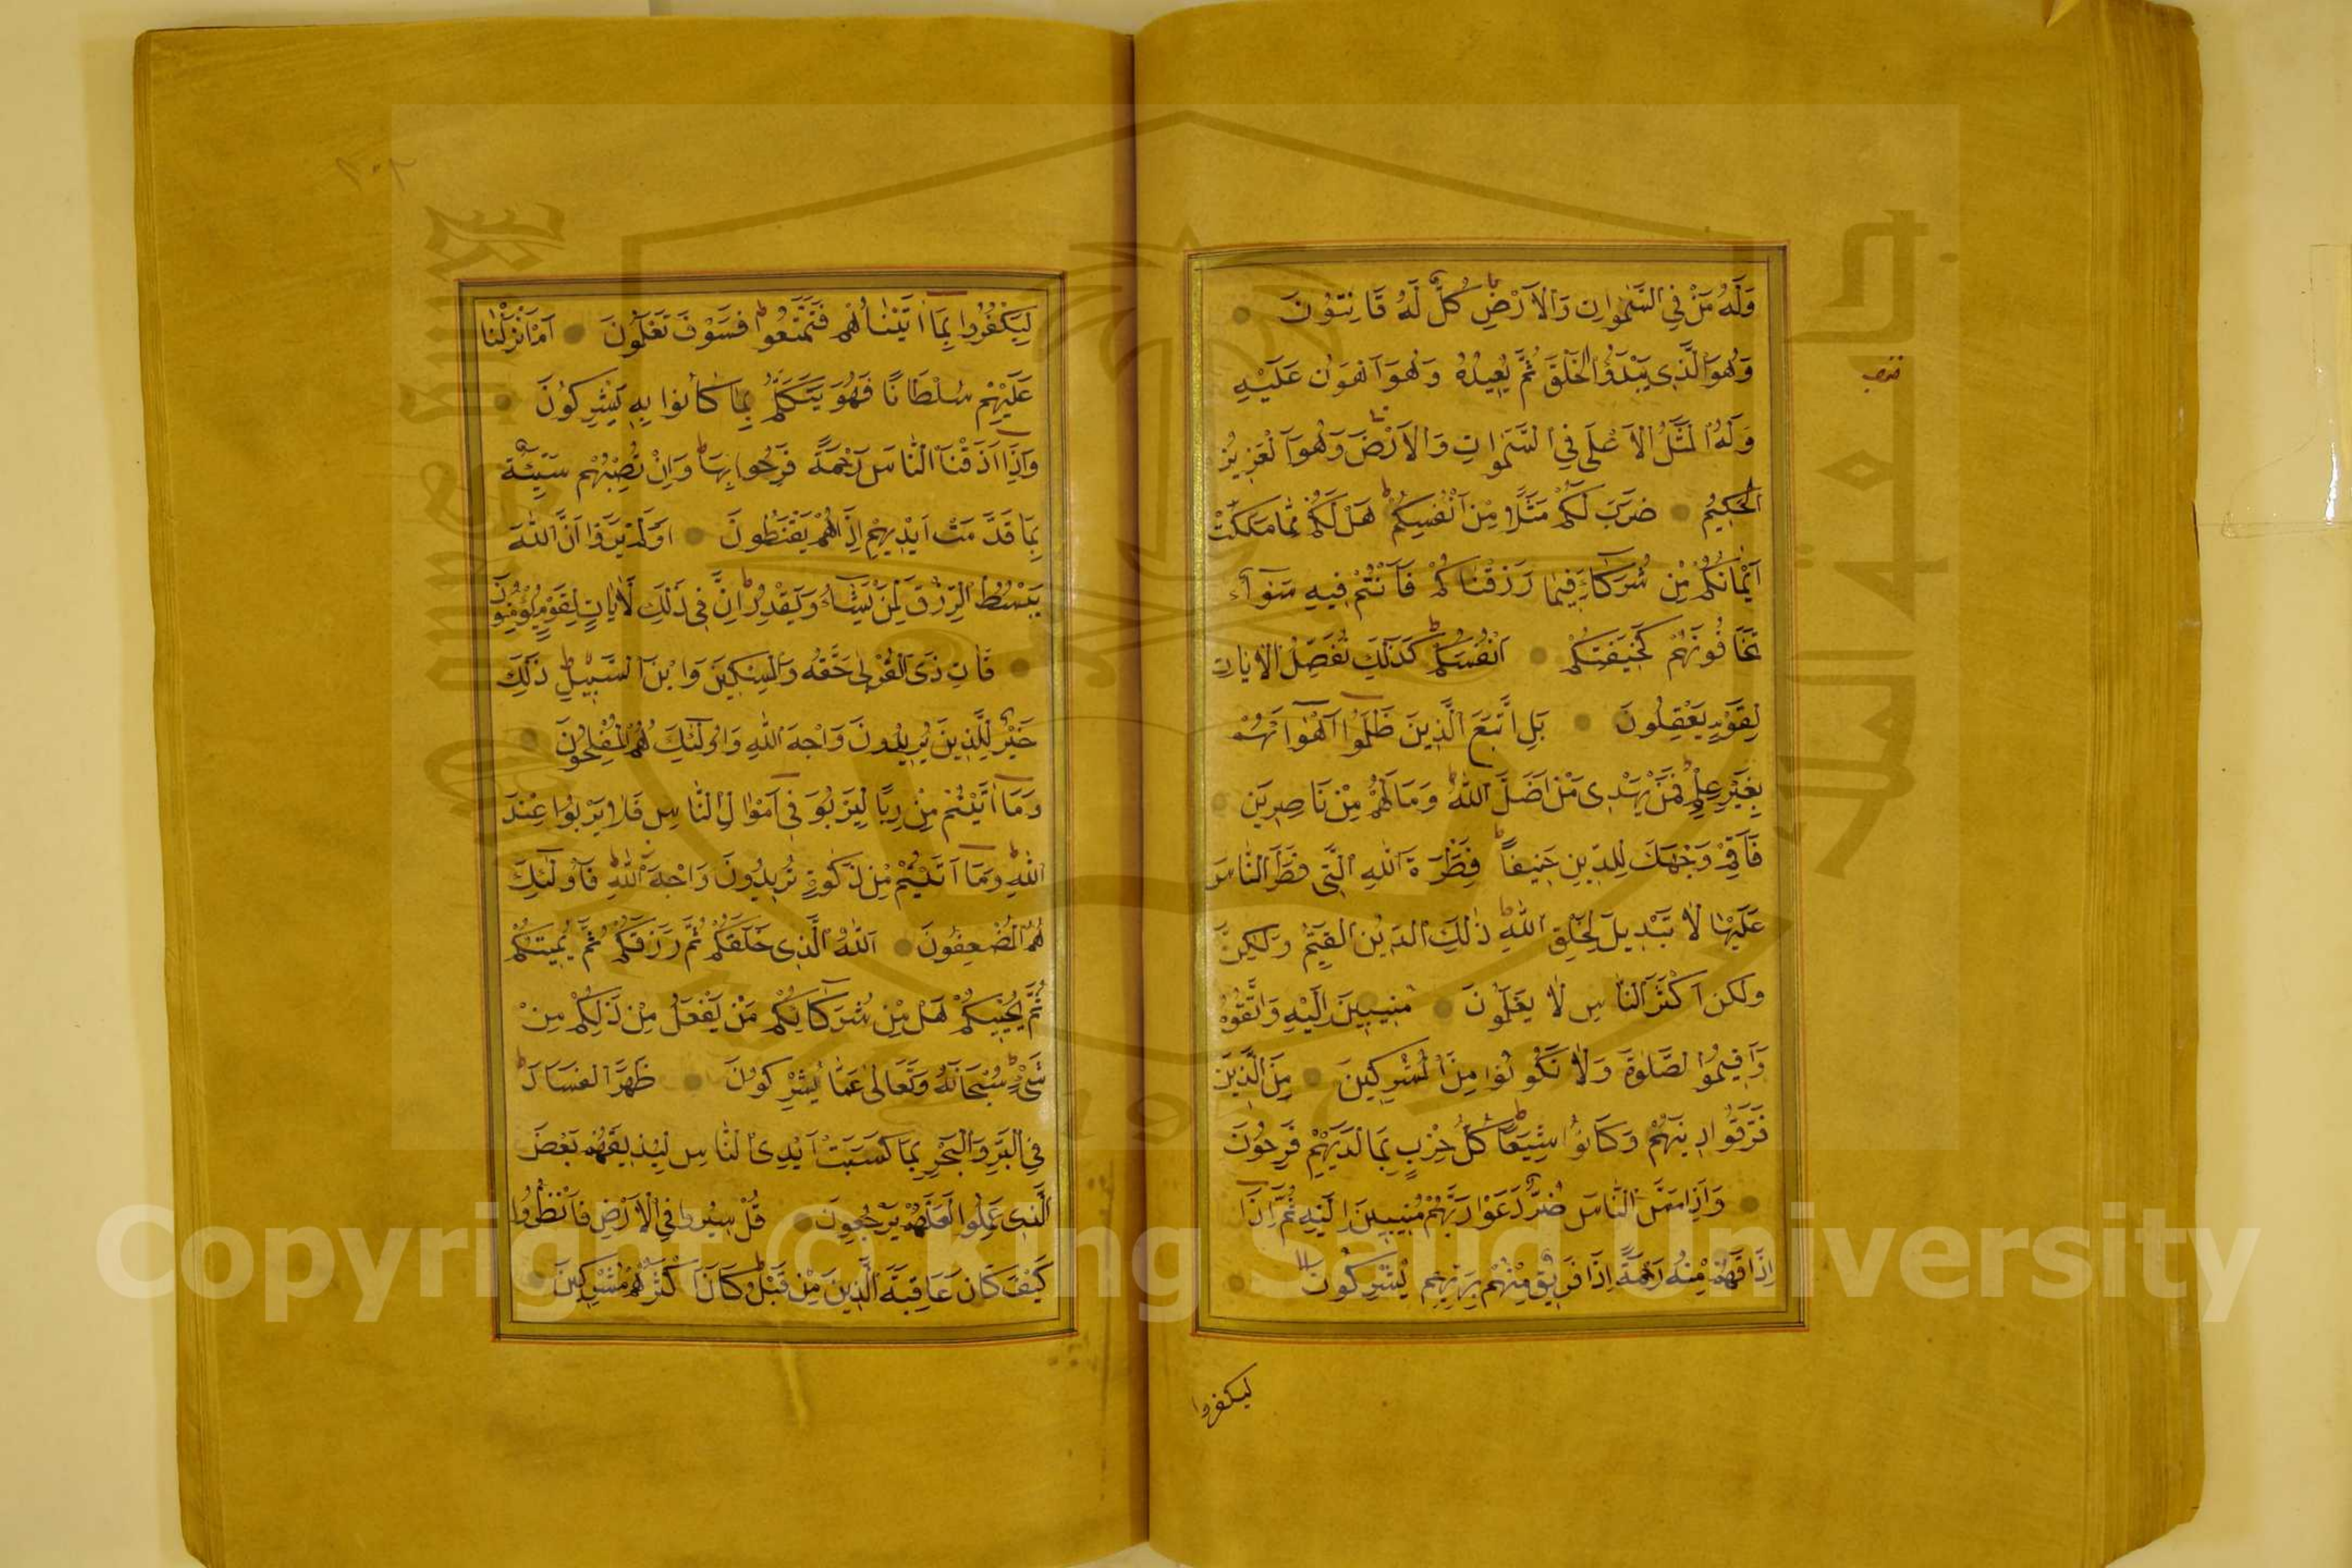 وَلَهُ مَنْ فِي السَّمٰوَاتِ وَالْاَرْضِ كُلٌّ لَهُ قَانِتُونَ
وَهُوَ الَّذِى يَبْدَؤُ الْخَلْقَ ثُمَّ يُعِيدُهُ وَهُوَ اَهْوَنُ عَلَيْهِ
وَلَهُ الْمَثَلُ الْاَعْلَى فِي السَّمٰوَاتِ وَالْاَرْضَ وَهُوَ الْعَزِيزُ
الْحَكِيمُ ضَرَبَ لَكُمْ مَثَلًا مِنْ اَنْفُسِكُمْ هَلْ لَكُمْ مِمَّا مَلَكَتْ
اَيْمَانُكُمْ مِنْ شُرَكَاءَ فِيمَا رَزَقْنَاكُمْ فَاَنْتُمْ فِيهِ سَوَآءٌ
تَخَافُونَهُمْ كَخِيفَتِكُمْ اَنْفُسَكُمْ كَذَلِكَ نُفَصِّلُ الْاٰيَاتِ
لِقَوْمٍ يَعْقِلُونَ بَلِ اتَّبَعَ الَّذِينَ ظَلَمُوا اَهْوَاءَهُمْ
بِغَيْرِ عِلْمٍ فَمَنْ يَهْدِى مَنْ اَضَلَّ اللّٰهُ وَمَا لَهُمْ مِنْ نَاصِرِينَ
فَاَقِمْ وَجْهَكَ لِلدِّينِ حَنِيفًا فِطْرَةَ اللّٰهِ الَّتِى فَطَرَ النَّاسَ
عَلَيْهَا لَا تَبْدِيلَ لِخَلْقِ اللّٰهِ ذٰلِكَ الدِّينُ الْقَيِّمُ وَلٰكِنَّ
ولكن اَكْثَرَ النَّاسِ لَا يَعْلَمُونَ مُنِيبِينَ اِلَيْهِ وَاتَّقُوهُ
وَاَقِيمُوا الصَّلٰوةَ وَلَا تَكُونُوا مِنَ الْمُشْرِكِينَ مِنَ الَّذِينَ
فَرَّقُوا دِينَهُمْ وَكَانُوا شِيَعًا كُلُّ حِزْبٍ بِمَا لَدَيْهِمْ فَرِحُونَ
وَاِذَا مَسَّ النَّاسَ ضُرٌّ دَعَوْا رَبَّهُمْ مُنِيبِينَ اِلَيْهِ ثُمَّ اِذَا
اِذَاقَهُمْ مِنْهُ رَحْمَةً اِذَا فَرِيقٌ مِنْهُمْ بِرَبِّهِمْ يُشْرِكُونَ
ليكفروا
٢٠٢
لِيَكْفُرُوا بِمَا اٰتَيْنَاهُمْ فَتَمَتَّعُوا فَسَوْفَ تَعْلَمُونَ اَمْ اَنْزَلْنَا
عَلَيْهِمْ سُلْطَانًا فَهُوَ يَتَكَلَّمُ بِمَا كَانُوا بِهِ يُشْرِكُونَ
وَاِذَا اَذَقْنَا النَّاسَ رَحْمَةً فَرِحُوا بِهَا وَاِنْ تُصِبْهُمْ سَيِّئَةٌ
بِمَا قَدَّمَتْ اَيْدِيهِمْ اِذَا هُمْ يَقْنَطُونَ اَوَلَمْ يَرَوْا اَنَّ اللّٰهَ
يَبْسُطُ الرِّزْقَ لِمَنْ يَشَاءُ وَيَقْدِرُ اِنَّ فِى ذٰلِكَ لَاٰيَاتٍ لِقَوْمٍ يُؤْمِنُونَ
فَاٰتِ ذَى الْقُرْبٰى حَقَّهُ وَالْمِسْكِينَ وَابْنَ السَّبِيلِ ذٰلِكَ
خَيْرٌ لِلَّذِينَ يُرِيدُونَ وَجْهَ اللّٰهِ وَاُولٰئِكَ هُمُ الْمُفْلِحُونَ
وَمَا اٰتَيْتُمْ مِنْ رِبًا لِيَرْبُوَ فِى اَمْوَالِ النَّاسِ فَلَا يَرْبُوا عِنْدَ
اللّٰهِ وَمَا اٰتَيْتُمْ مِنْ زَكٰوةٍ تُرِيدُونَ وَجْهَ اللّٰهِ فَاُولٰئِكَ
هُمُ الْمُضْعِفُونَ اَللّٰهُ الَّذِى خَلَقَكُمْ ثُمَّ رَزَقَكُمْ ثُمَّ يُمِيتُكُمْ
ثُمَّ يُحْيِيكُمْ هَلْ مِنْ شُرَكَائِكُمْ مَنْ يَفْعَلُ مِنْ ذٰلِكُمْ مِنْ
شَىْءٍ سُبْحَانَهُ وَتَعَالٰى عَمَّا يُشْرِكُونَ ظَهَرَ الْفَسَادُ
فِى الْبَرِّ وَالْبَحْرِ بِمَا كَسَبَتْ اَيْدِى النَّاسِ لِيُذِيقَهُمْ بَعْضَ
الَّذِى عَمِلُوا لَعَلَّهُمْ يَرْجِعُونَ قُلْ سِيرُوا فِى الْاَرْضِ فَانْظُرُوا
كَيْفَ كَانَ عَاقِبَةُ الَّذِينَ مِنْ قَبْلُ كَانَ اَكْثَرُهُمْ مُشْرِكِينَ
Copyright © King Saud University